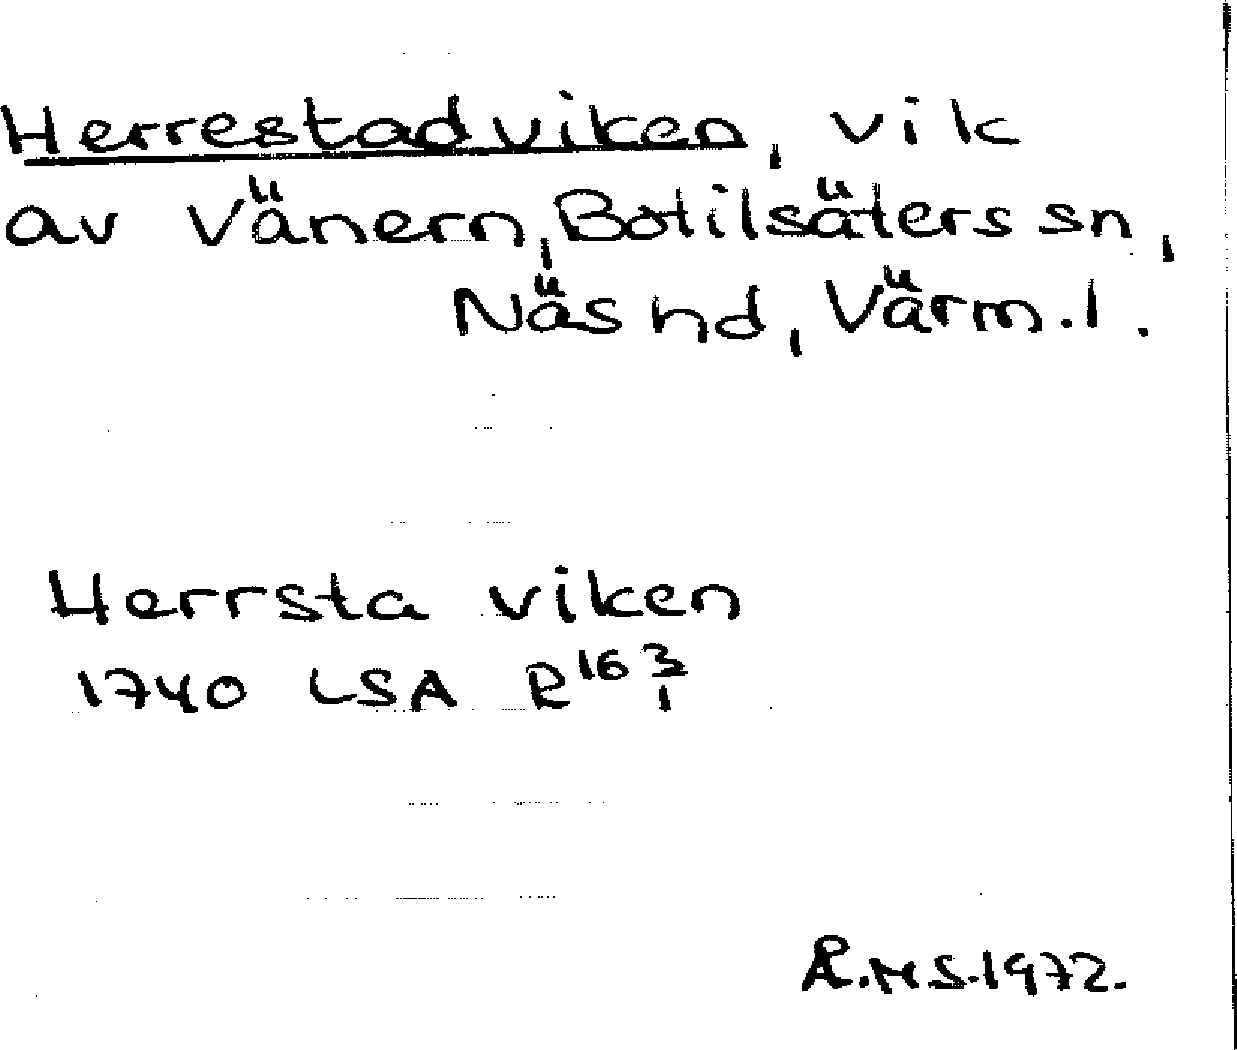 Herrestadviken, vik
av Vänern, Botilsäters sn,
Näs hd, Värm.l.
Herrsta viken
1740 LSA R16 3/1
Æ.M.S.1972.